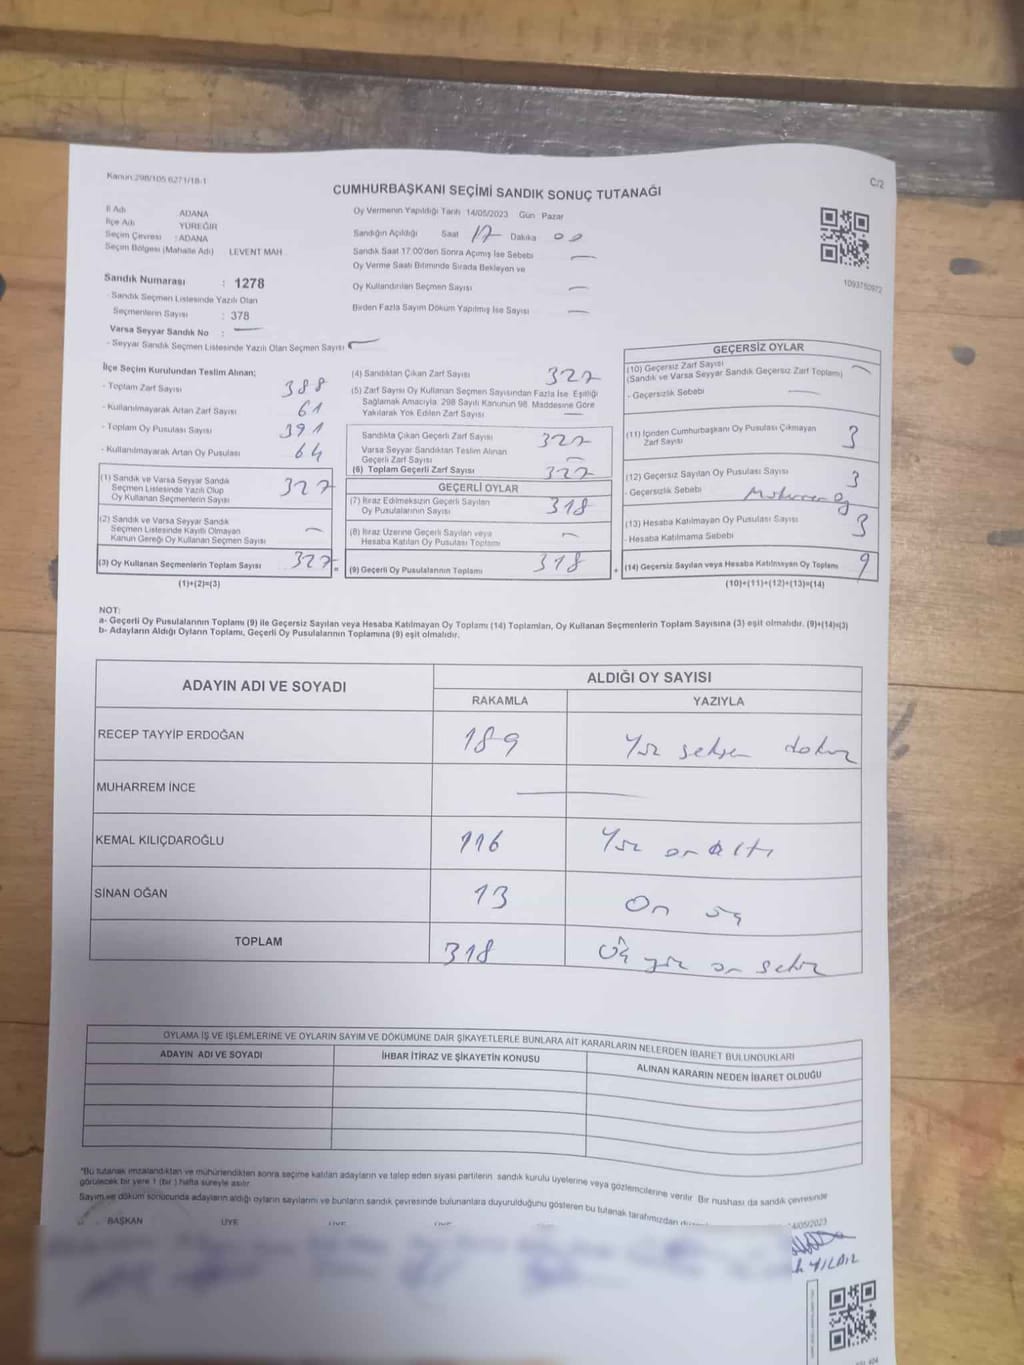 Kanun:298/105 6271/18-1
C/2
CUMHURBAŞKANI SEÇİMİ SANDIK SONUÇ TUTANAĞI
İl Adı ADANA
İlçe Adı YÜREĞİR
Seçim Çevresi : ADANA
Seçim Bölgesi (Mahalle Adı) LEVENT MAH
Oy Vermenin Yapıldığı Tarih 14/05/2023 Gün Pazar
Sandığın Açıldığı Saat 17 Dakika 00
Sandık Saat 17:00'den Sonra Açımış İse Sebebi —
Oy Verme Saati Bitiminde Sırada Bekleyen ve
Oy Kullandırılan Seçmen Sayısı —
Birden Fazla Sayım Döküm Yapılmış İse Sayısı —
1093750972
Sandık Numarası : 1278
- Sandık Seçmen Listesinde Yazılı Olan
Seçmenlerin Sayısı : 378
Varsa Seyyar Sandık No : —
- Seyyar Sandık Seçmen Listesinde Yazılı Olan Seçmen Sayısı —
İlçe Seçim Kurulundan Teslim Alınan;
- Toplam Zarf Sayısı 388
- Kullanılmayarak Artan Zarf Sayısı 61
- Toplam Oy Pusulası Sayısı 391
- Kullanılmayarak Artan Oy Pusulası 64
(1) Sandık ve Varsa Seyyar Sandık
Seçmen Listesinde Yazılı Olup
Oy Kullanan Seçmenlerin Sayısı 327
(2) Sandık ve Varsa Seyyar Sandık
Seçmen Listesinde Kayıtlı Olmayan
Kanun Gereği Oy Kullanan Seçmen Sayısı —
(3) Oy Kullanan Seçmenlerin Toplam Sayısı 327
(1)+(2)=(3)
(4) Sandıktan Çıkan Zarf Sayısı 327
(5) Zarf Sayısı Oy Kullanan Seçmen Sayısından Fazla İse, Eşitliği
Sağlamak Amacıyla, 298 Sayılı Kanunun 98. Maddesine Göre
Yakılarak Yok Edilen Zarf Sayısı —
Sandıkta Çıkan Geçerli Zarf Sayısı 327
Varsa Seyyar Sandıktan Teslim Alınan
Geçerli Zarf Sayısı —
(6) Toplam Geçerli Zarf Sayısı 327
GEÇERLİ OYLAR
(7) İtiraz Edilmeksizin Geçerli Sayılan
Oy Pusulalarının Sayısı 318
(8) İtiraz Üzerine Geçerli Sayılan veya
Hesaba Katılan Oy Pusulası Toplamı —
= (9) Geçerli Oy Pusulalarının Toplamı 318
GEÇERSİZ OYLAR
(10) Geçersiz Zarf Sayısı
(Sandık ve Varsa Seyyar Sandık Geçersiz Zarf Toplamı) —
- Geçersizlik Sebebi —
(11) İçinden Cumhurbaşkanı Oy Pusulası Çıkmayan
Zarf Sayısı 3
(12) Geçersiz Sayılan Oy Pusulası Sayısı 3
- Geçersizlik Sebebi
(13) Hesaba Katılmayan Oy Pusulası Sayısı 3
- Hesaba Katılmama Sebebi
+ (14) Geçersiz Sayılan veya Hesaba Katılmayan Oy Toplamı 9
(10)+(11)+(12)+(13)=(14)
NOT:
a- Geçerli Oy Pusulalarının Toplamı (9) ile Geçersiz Sayılan veya Hesaba Katılmayan Oy Toplamı (14) Toplamları, Oy Kullanan Seçmenlerin Toplam Sayısına (3) eşit olmalıdır. (9)+(14)=(3)
b- Adayların Aldığı Oyların Toplamı, Geçerli Oy Pusulalarının Toplamına (9) eşit olmalıdır.
ADAYIN ADI VE SOYADI
ALDIĞI OY SAYISI
RAKAMLA YAZIYLA
RECEP TAYYİP ERDOĞAN 189 Yüz seksen dokuz
MUHARREM İNCE —
KEMAL KILIÇDAROĞLU 116 Yüz on altı
SİNAN OĞAN 13 On üç
TOPLAM 318 Üç yüz on sekiz
OYLAMA İŞ VE İŞLEMLERİNE VE OYLARIN SAYIM VE DÖKÜMÜNE DAİR ŞİKAYETLERLE BUNLARA AİT KARARLARIN NELERDEN İBARET BULUNDUKLARI
ADAYIN ADI VE SOYADI
İHBAR İTİRAZ VE ŞİKAYETİN KONUSU
ALINAN KARARIN NEDEN İBARET OLDUĞU
*Bu tutanak imzalandıktan ve mühürlendikten sonra seçime katılan adayların ve talep eden siyasi partilerin sandık kurulu üyelerine veya gözlemcilerine verilir. Bir nushası da sandık çevresinde
görülecek bir yere 1 (bir) hafta süreyle asılır.
Sayım ve döküm sonucunda adayların aldığı oyların sayılarını ve bunların sandık çevresinde bulunanlara duyurulduğunu gösteren bu tutanak tarafımızdan
14/05/2023
BAŞKAN ÜYE ÜYE ÜYE
YILDIZ